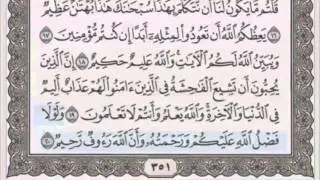 قُلْتُم مَّا يَكُونُ لَنَآ أَن نَّتَكَلَّمَ بِهَٰذَا سُبْحَٰنَكَ هَٰذَا بُهْتَٰنٌ عَظِيمٌ
١٦ يَعِظُكُمُ ٱللَّهُ أَن تَعُودُوا۟ لِمِثْلِهِۦٓ أَبَدًا إِن كُنتُم مُّؤْمِنِينَ ١٧
وَيُبَيِّنُ ٱللَّهُ لَكُمُ ٱلْءَايَٰتِ وَٱللَّهُ عَلِيمٌ حَكِيمٌ ١٨ إِنَّ ٱلَّذِينَ
يُحِبُّونَ أَن تَشِيعَ ٱلْفَٰحِشَةُ فِى ٱلَّذِينَ ءَامَنُوا۟ لَهُمْ عَذَابٌ أَلِيمٌ
فِى ٱلدُّنْيَا وَٱلْءَاخِرَةِ وَٱللَّهُ يَعْلَمُ وَأَنتُمْ لَا تَعْلَمُونَ ١٩ وَلَوْلَا
فَضْلُ ٱللَّهِ عَلَيْكُمْ وَرَحْمَتُهُۥ وَأَنَّ ٱللَّهَ رَءُوفٌ رَّحِيمٌ ٢٠
٣٥١